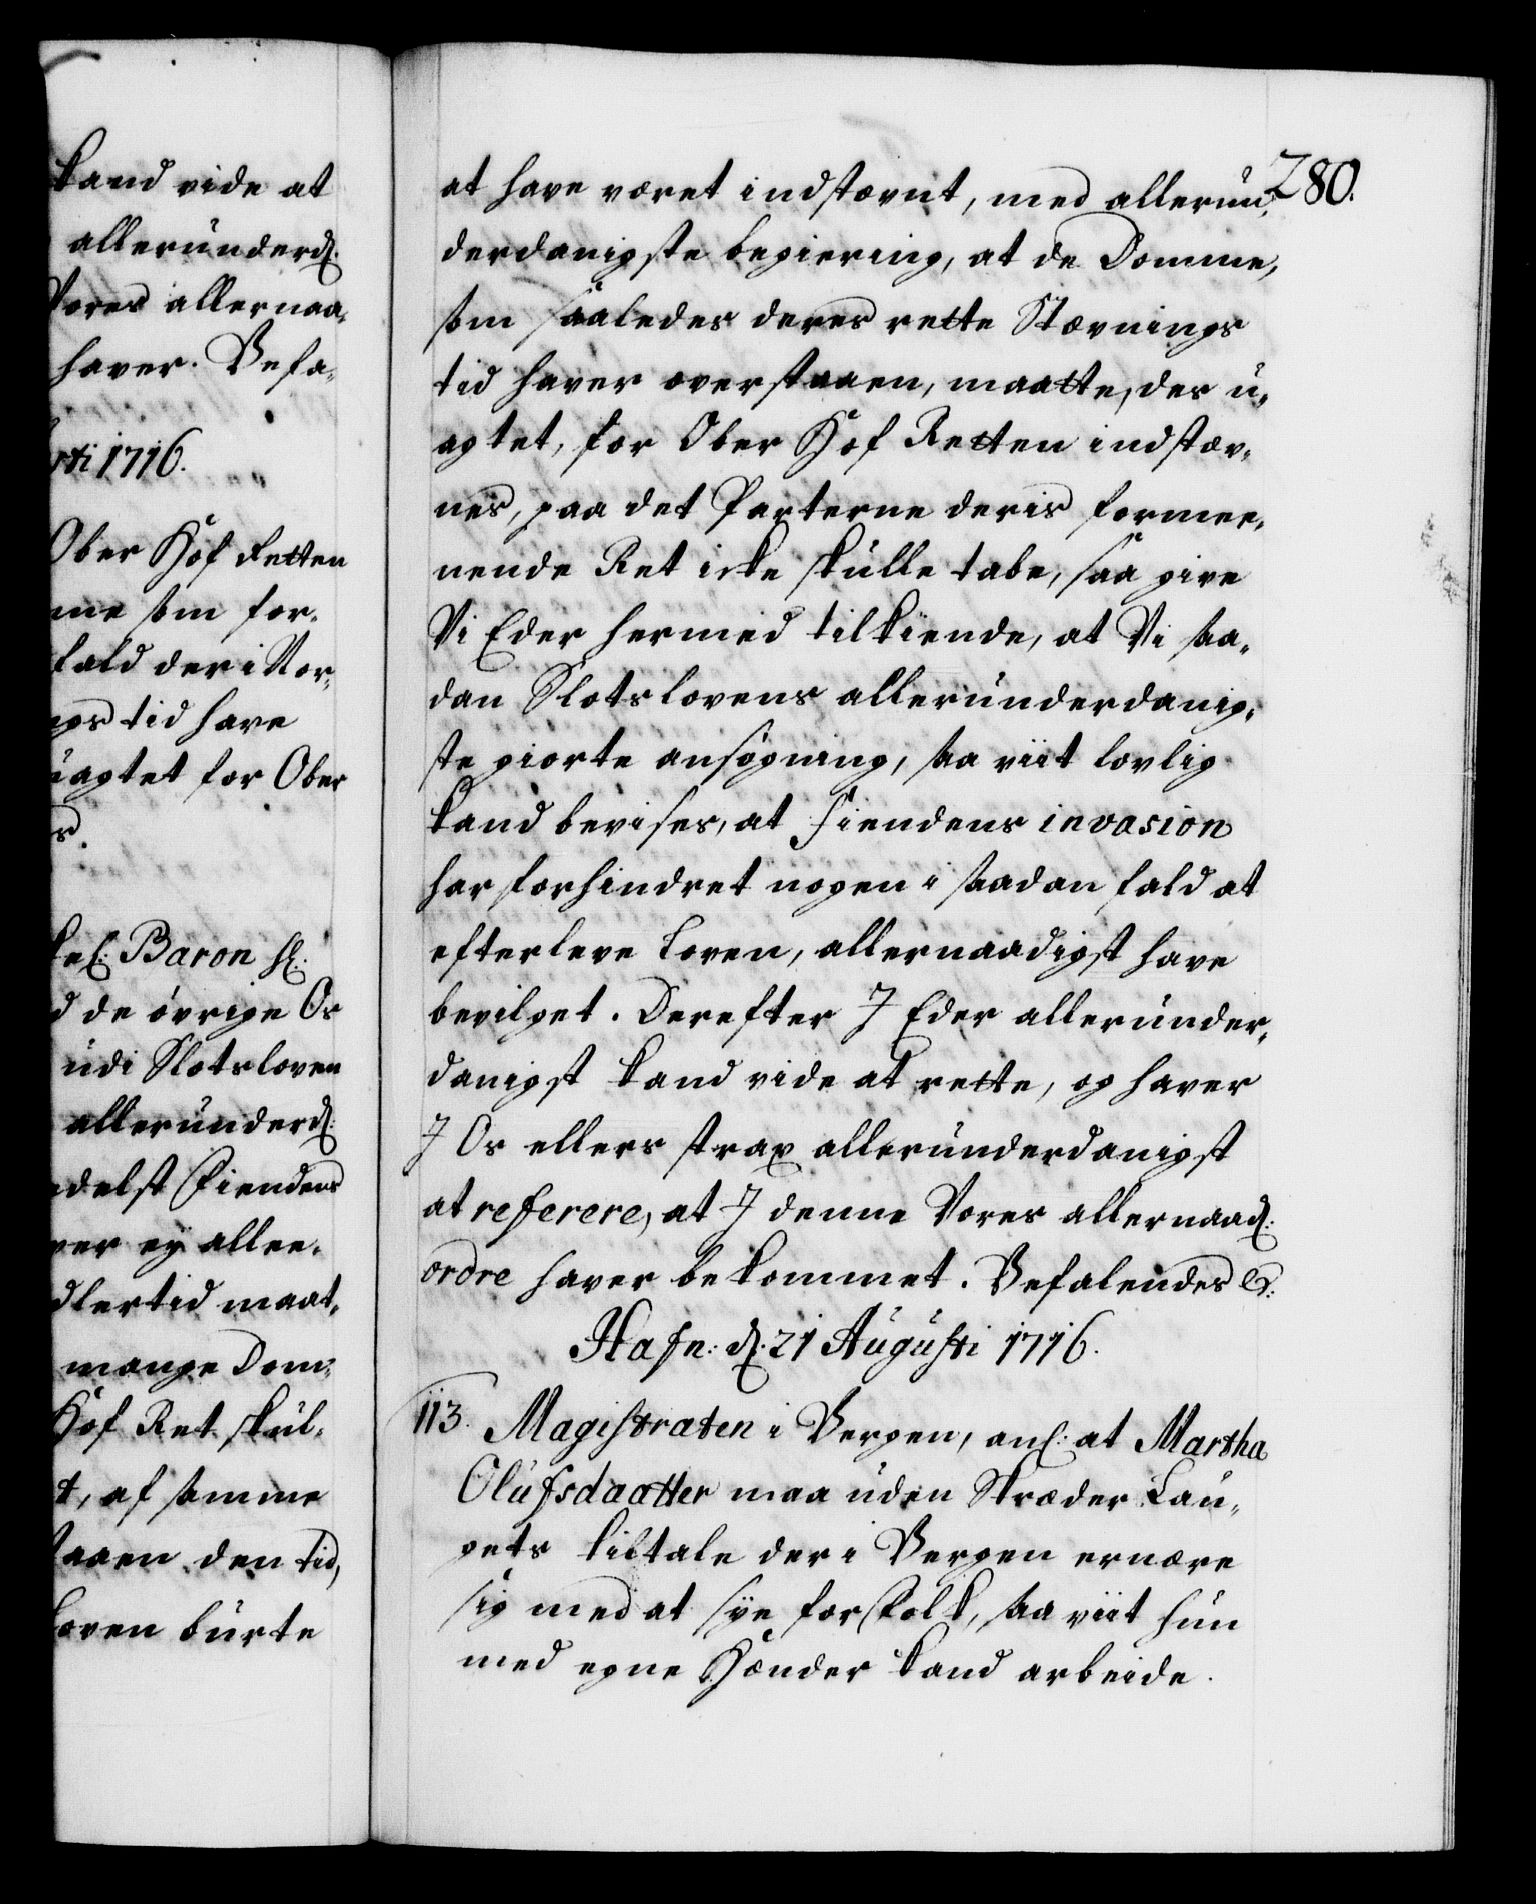 kand vide at
allerunderd:
Vores allernaa-
haver. Befa-
rti 1716.
Ober Hof Retten
me som for-
fald der i Nor-
ngs tid have
uagtet for Ober
s.
kel: Baron H:
d de øvrige Os
udi Slotsloven
allerunderd:
edelst Fiendens
ver ey allee-
dlertid maat-
mange Dom-
Hof Ret skul-
t, af samme
staaen den tid,
Loven burte
280.
at have været indstævnt, med allerun-
derdanigste begiering, at de Domme,
som saaledes deres rette Stævnings
tid haver overstaaen, maatte, des u-
agtet, for Ober Hof Retten indstæv-
nes, paa det Parterne deris formee-
nende Ret icke skulle tabe, saa give
Vi Eder hermed tilkiende, at Vi saa-
dan Slotslovens allerunderdanig-
ste giorte ansøgning, saa viit lovlig
kand bevises, at Fiendens invasion
har forhindret nogen i saadan fald at
efterleve Loven, allernaadigst have
bevilget. Derefter I Eder allerunder-
danigst kand vide at rette, og haver
I Os ellers strax allerunderdanigst
at referere, at I denne Vores allernaad:
ordre haver bekommet. Befalendes &:
Hafn: d: 21 Augusti 1716.
113. Magistraten i Bergen, anl: at Martha
Olufsdaatter maa uden Skræder Lau-
gets tiltale der i Bergen ernære
sig med at sye for folk, saa viit hun
med egne Hænder kand arbeide.